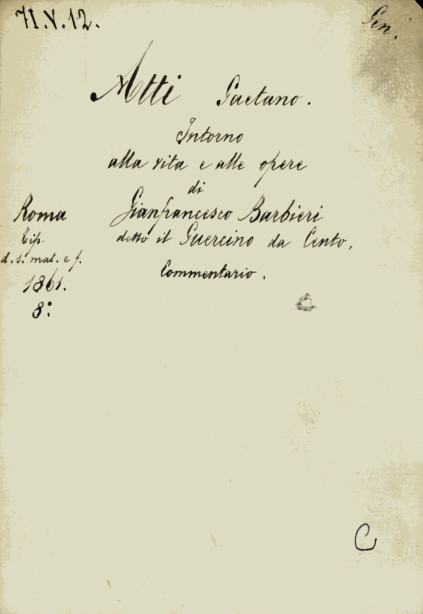 71.V.12.
Gen.
Atti Gaetano.
Intorno
alla vita e alle opere
di
Gianfrancesco Barbieri
detto il Guercino da Cento.
Commentario.
Roma
tip.
d. s. mat. e f.
1861.
8º
C